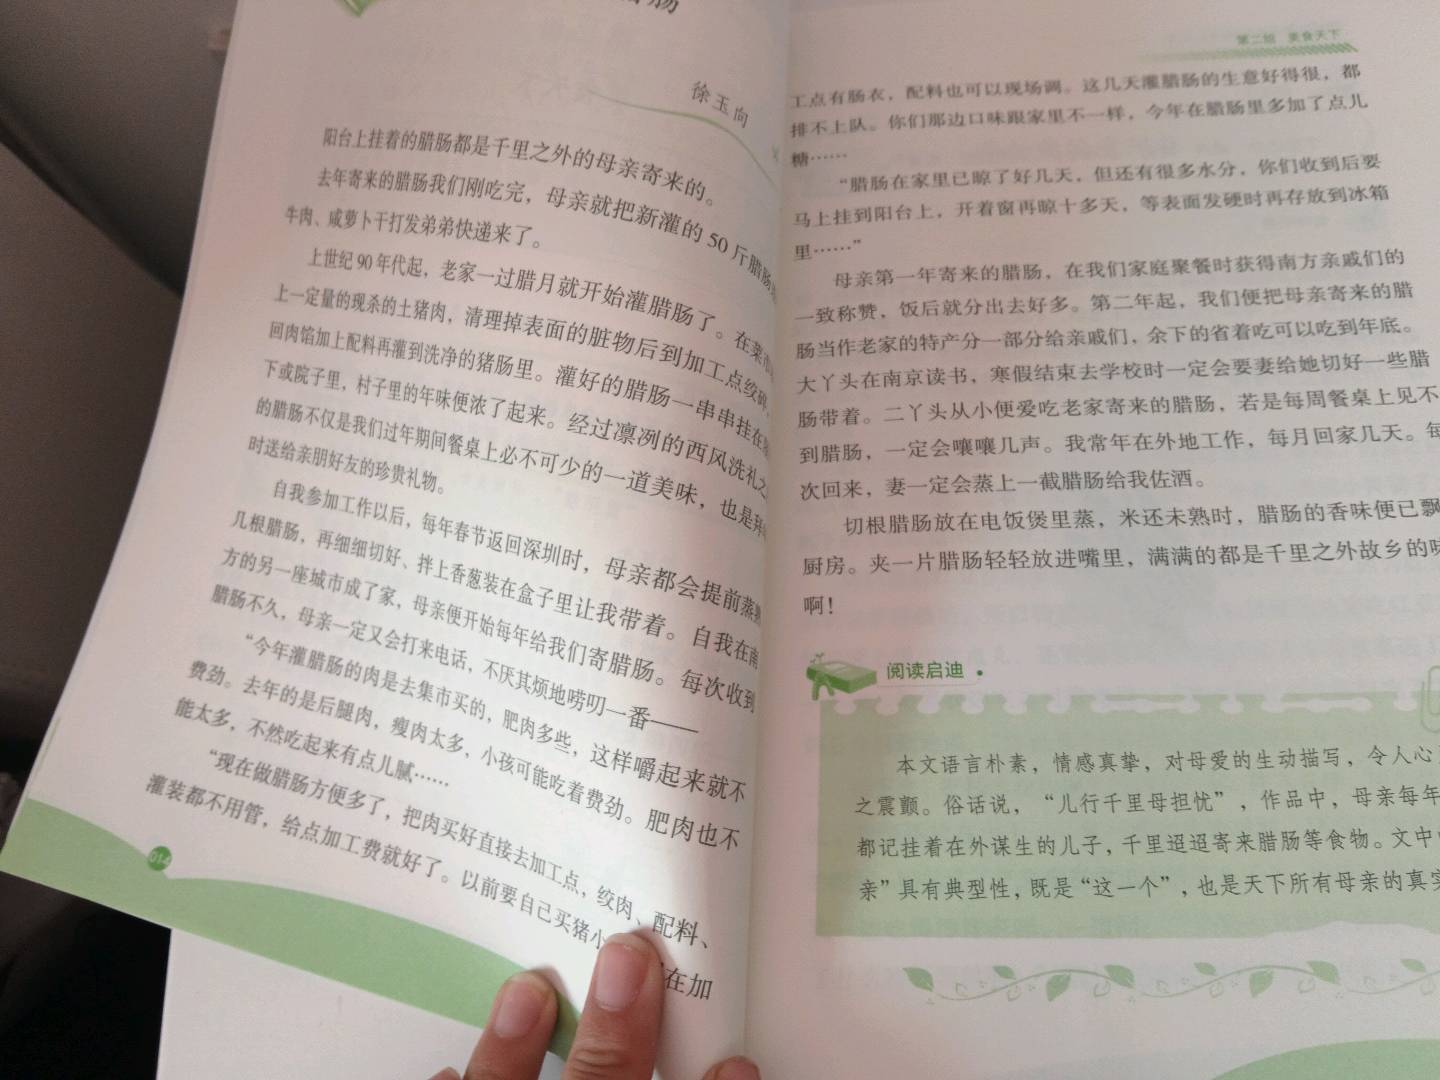 肠
徐玉向
阳台上挂着的腊肠都是千里之外的母亲寄来的。
去年寄来的腊肠我们刚吃完，母亲就把新灌的50斤腊肠
牛肉、咸萝卜干打发弟弟快递来了。
上世纪90年代起，老家一过腊月就开始灌腊肠了。在菜
上一定量的现杀的土猪肉，清理掉表面的脏物后到加工点绞碎，
回肉馅加上配料再灌到洗净的猪肠里。灌好的腊肠一串串挂在
下或院子里，村子里的年味便浓了起来。经过凛冽的西风洗礼之
的腊肠不仅是我们过年期间餐桌上必不可少的一道美味，也是拜
时送给亲朋好友的珍贵礼物。
自我参加工作以后，每年春节返回深圳时，母亲都会提前蒸
几根腊肠，再细细切好、拌上香葱装在盒子里让我带着。自我在南
方的另一座城市成了家，母亲便开始每年给我们寄腊肠。每次收到
腊肠不久，母亲一定又会打来电话，不厌其烦地唠叨一番——
“今年灌腊肠的肉是去集市买的，肥肉多些，这样嚼起来就不
费劲。去年的是后腿肉，瘦肉太多，小孩可能吃着费劲。肥肉也不
能太多，不然吃起来有点儿腻……
“现在做腊肠方便多了，把肉买好直接去加工点，绞肉、配料、
灌装都不用管，给点加工费就好了。以前要自己买猪小在加
014
第二组 美食天下
工点有肠衣，配料也可以现场调。这几天灌腊肠的生意好得很，都
排不上队。你们那边口味跟家里不一样，今年在腊肠里多加了点儿
糖……
“腊肠在家里已晾了好几天，但还有很多水分，你们收到后要
马上挂到阳台上，开着窗再晾十多天，等表面发硬时再存放到冰箱
里……”
母亲第一年寄来的腊肠，在我们家庭聚餐时获得南方亲戚们的
一致称赞，饭后就分出去好多。第二年起，我们便把母亲寄来的腊
肠当作老家的特产分一部分给亲戚们，余下的省着吃可以吃到年底。
大丫头在南京读书，寒假结束去学校时一定会要妻给她切好一些腊
肠带着。二丫头从小便爱吃老家寄来的腊肠，若是每周餐桌上见不
到腊肠，一定会嚷嚷几声。我常年在外地工作，每月回家几天。每
次回来，妻一定会蒸上一截腊肠给我佐酒。
切根腊肠放在电饭煲里蒸，米还未熟时，腊肠的香味便已飘
厨房。夹一片腊肠轻轻放进嘴里，满满的都是千里之外故乡的味
啊！
阅读启迪
本文语言朴素，情感真挚，对母爱的生动描写，令人心
之震颤。俗话说，“儿行千里母担忧”，作品中，母亲每年
都记挂着在外谋生的儿子，千里迢迢寄来腊肠等食物。文中
亲”具有典型性，既是“这一个”，也是天下所有母亲的真实